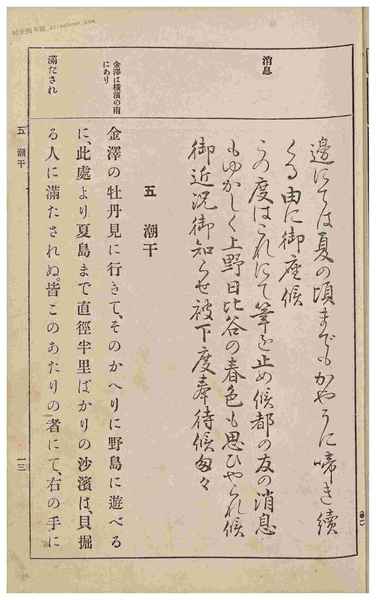 消息
邊にては夏の頃までもかやうに啼き續
くる由に御座候
この度はこれにて筆を止め候都の友の消息
もゆかしく上野日比谷の春色も思ひやられ候
御近況御知らせ被下度奉待候匆々
五 潮干
金澤は橫濱の南
にあり
金澤の牡丹見に行きて、そのかへりに野島に遊べる
に、此處より夏島まで直徑半里ばかりの沙濱は、貝掘
滿たされ
る人に滿たされぬ。皆このあたりの者にて、右の手に
五 潮干
一三